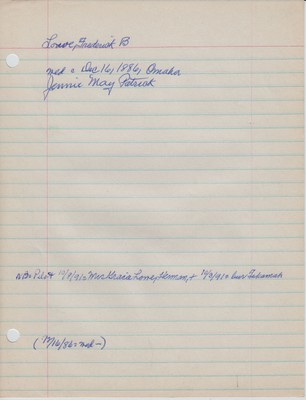 Lowe, Frederick B
md: Dec 16, 1886, Omaha
Jennie May Patrick
NB: Pilot 9/91: Mrs Gracia Lowe, Herman, + 9/91: bur Tekamah
(86: md-)